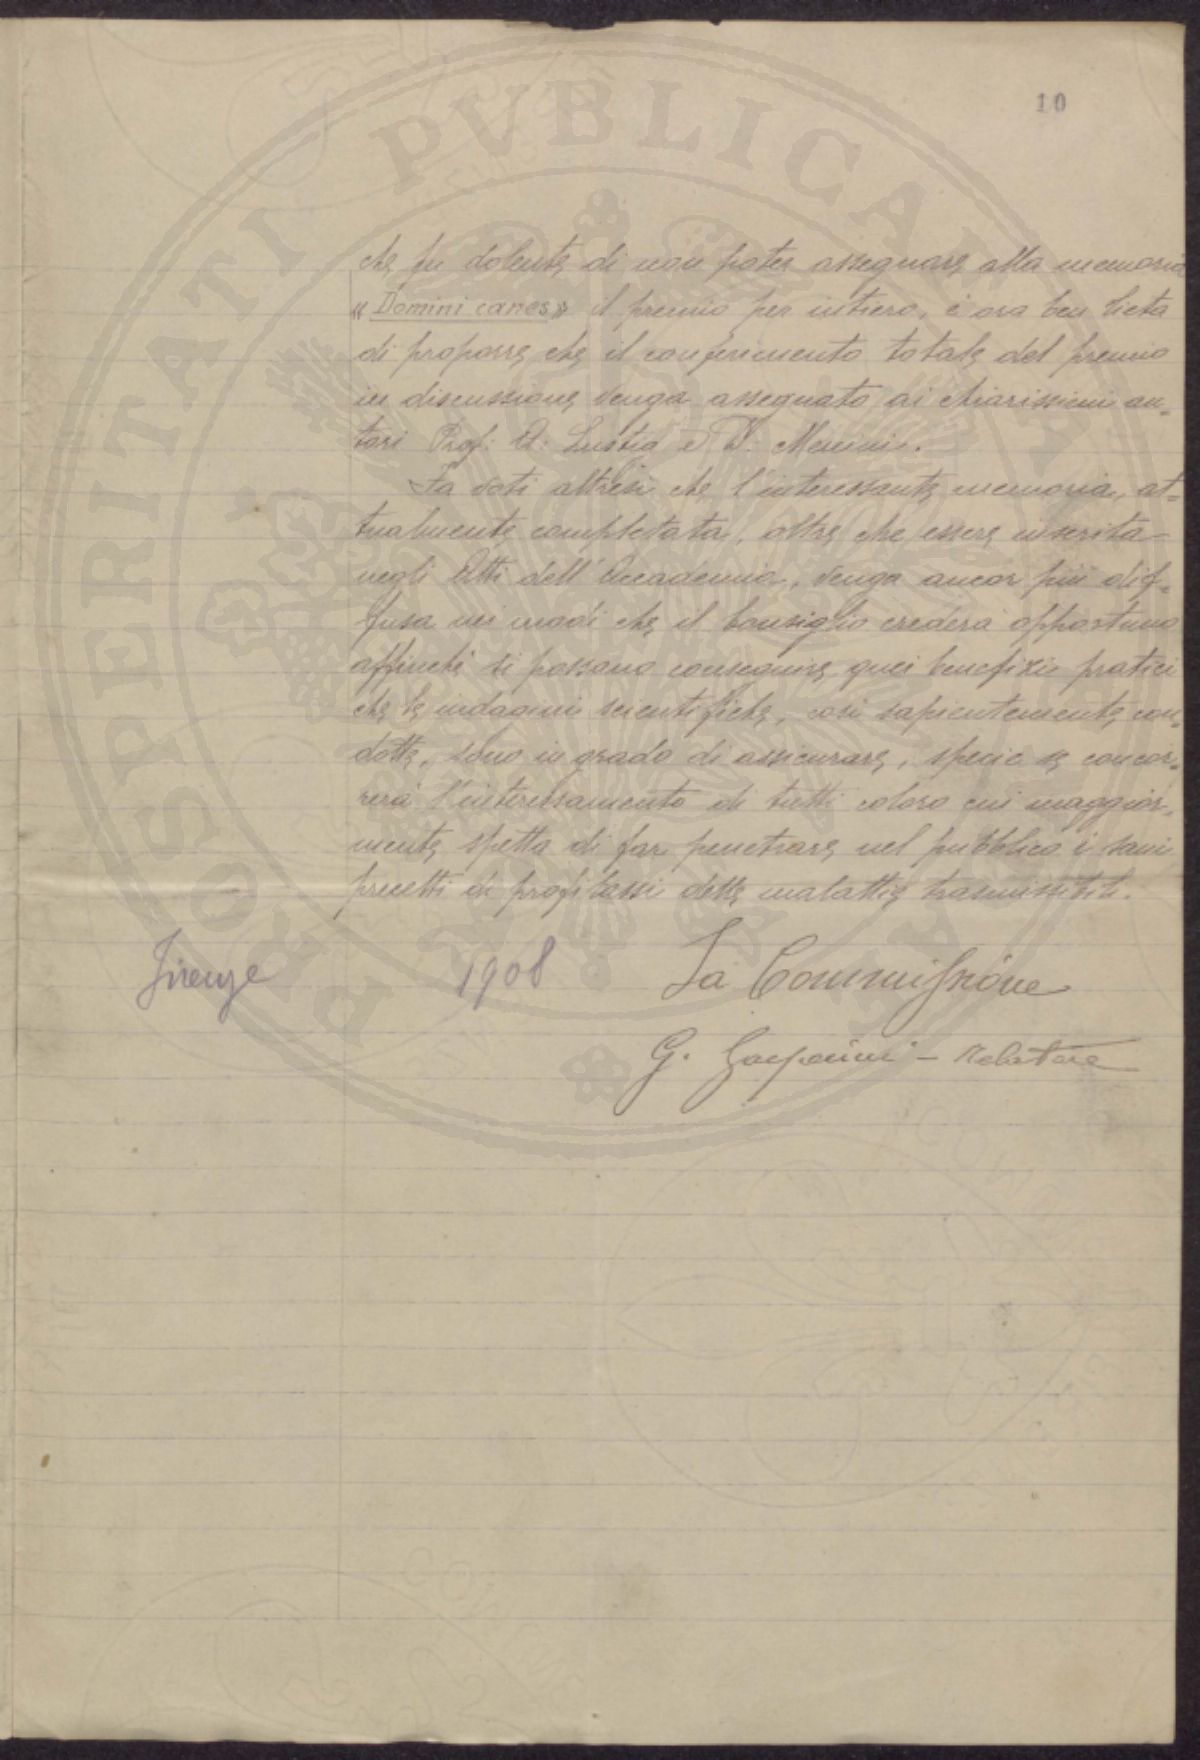 10
che fu dolente di non poter assegnare alla memoria
« Domini canes » il premio per intiero, è ora ben lieta
di proporre che il conferimento totale del premio
in discussione venga assegnato ai chiarissimi au-
tori Prof: A: Lustig e
Fa voti altresì che l'interessante memoria, at-
tualmente completata, oltre che essere inserita
negli Atti dell'Accademia, venga ancor più dif-
fusa nei modi che il Consiglio crederà opportuno
affinché si possano conseguire quei benefizi pratici
che le indagini scientifiche, così sapientemente con-
dotte, sono in grado di assicurare, specie se concor-
rerà l'interessamento di tutti coloro cui maggior-
mente spetta di far penetrare nel pubblico i sani
precetti di profilassi delle malattie trasmissibili.
Firenze 1908 La Commissione
G. Gasperini – Relatore
PROSPERITATI PVBLICAE